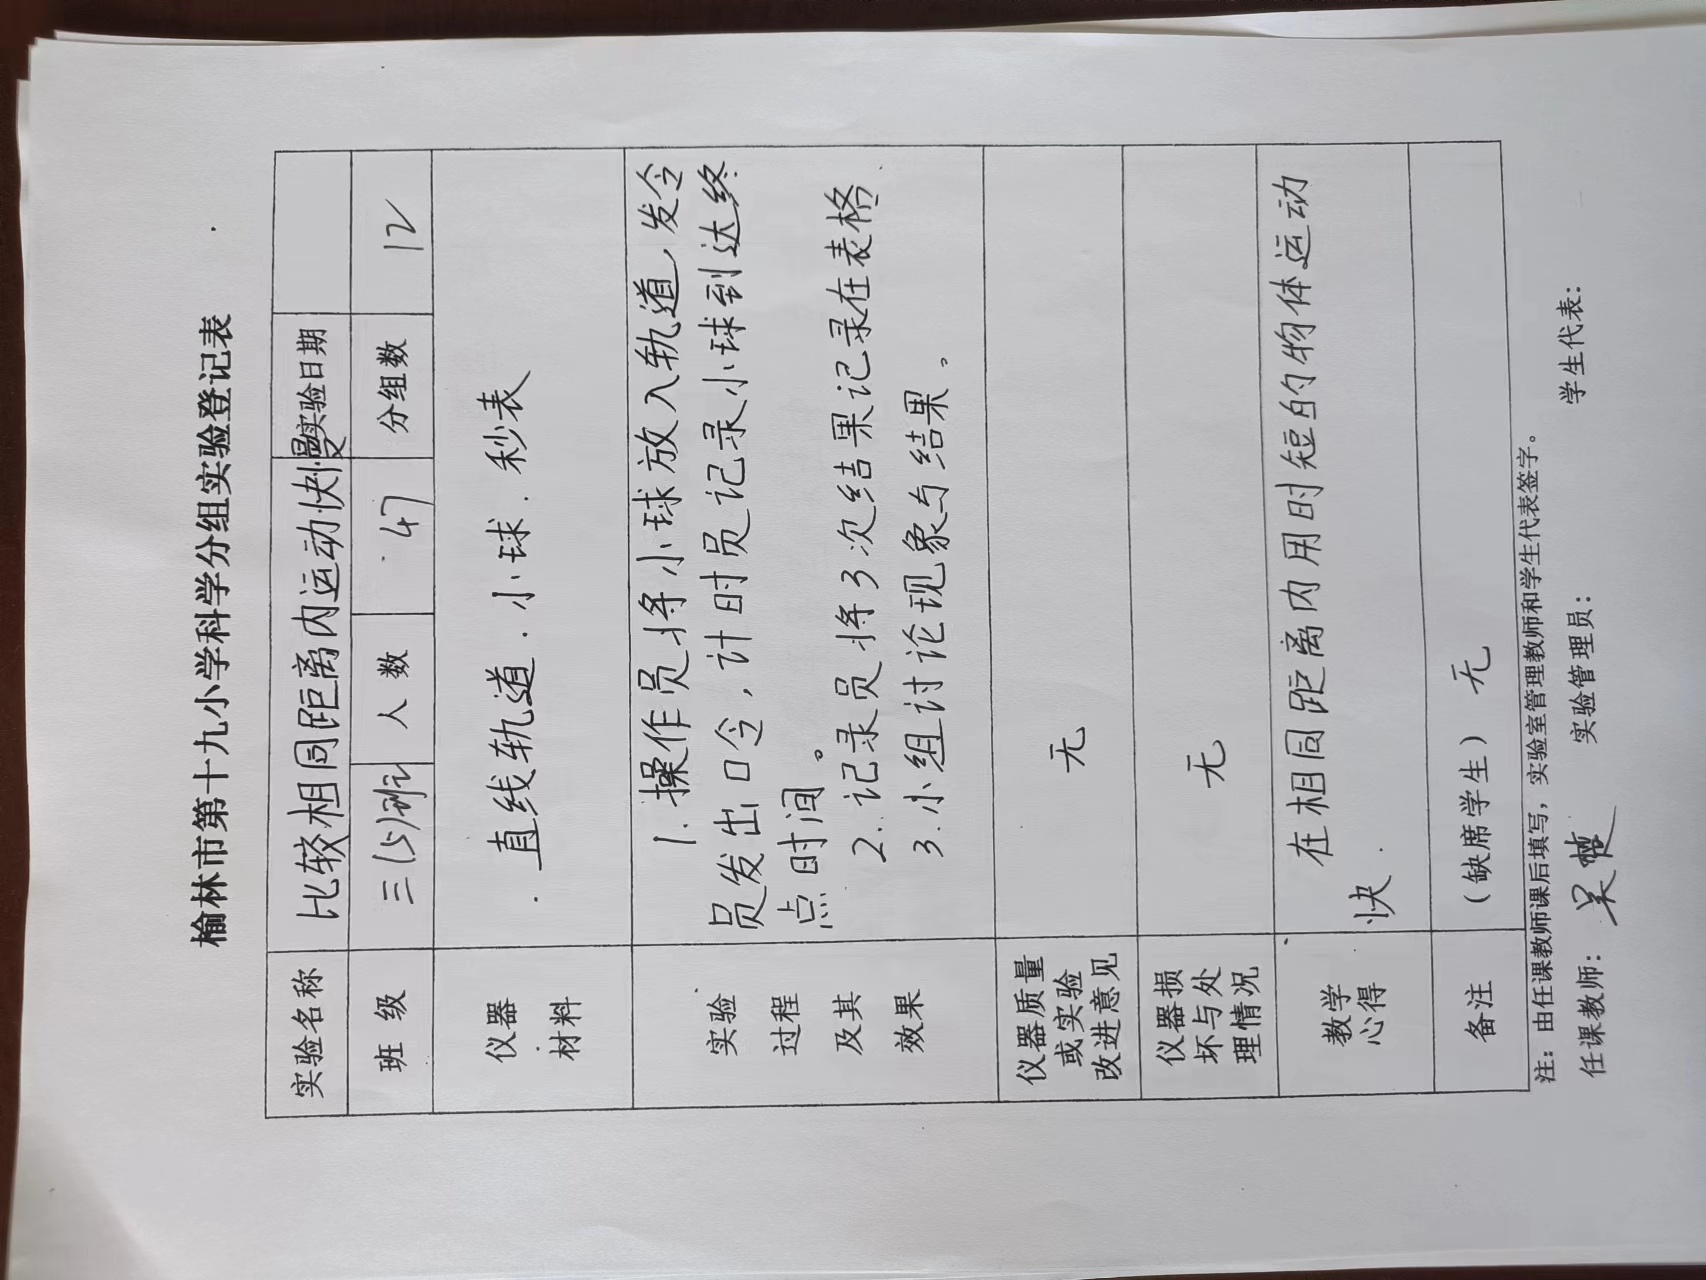 榆林市第十九小学科学分组实验登记表
实验名称 比较相同距离内运动快慢 实验日期
班级 三(5)班 人数 47 分组数 12
仪器材料 直线轨道．小球．秒表
实验过程及其效果
1. 操作员将小球放入轨道，发令
员发出口令，计时员记录小球到达终
点时间。
2. 记录员将3次结果记录在表格．
3. 小组讨论现象与结果。
仪器质量或实验改进意见 无
仪器损坏与处理情况 无
教学心得 在相同距离内用时短的物体运动
快．
备注 （缺席学生）无
注：由任课教师课后填写，实验室管理教师和学生代表签字。
任课教师：吴 实验管理员： 学生代表：